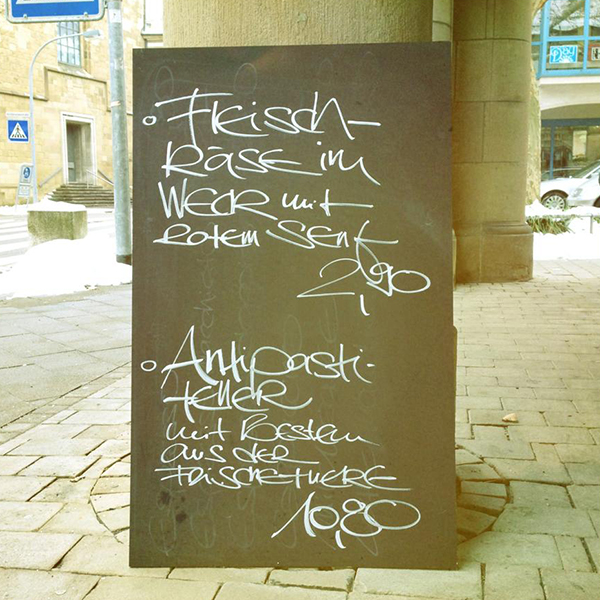 Fleisch-
käse im
Weck mit
rotem Senf
2,90
Antipasti-
teller
mit Bestem
aus der
Frischetheke
10,80